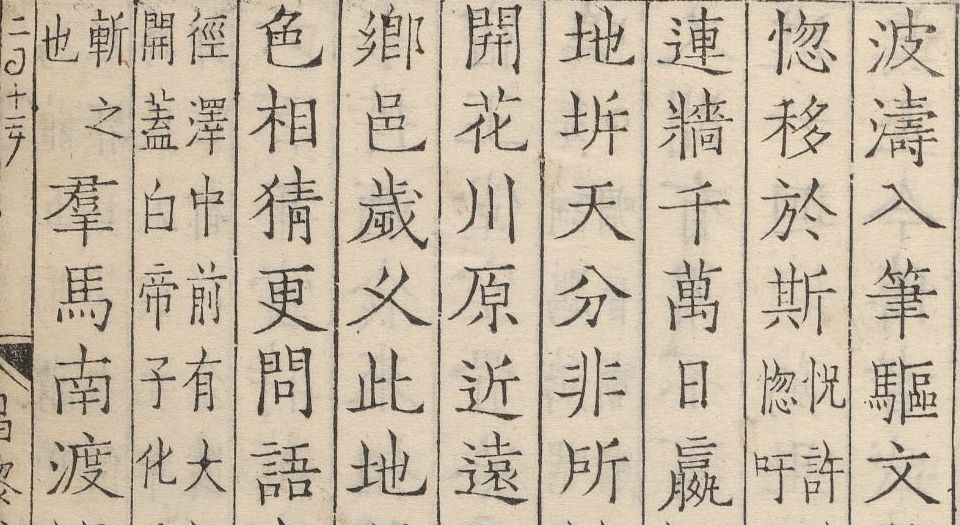 波濤入筆驅文
惚移於斯
怳許
惚吁
連牆千萬日嬴
地坼天分非所
開花川原近遠
鄉邑歲乂此地
色相猜更問語
徑澤中前有大
開蓋白帝子化
斬之
也
羣馬南渡
昌黎